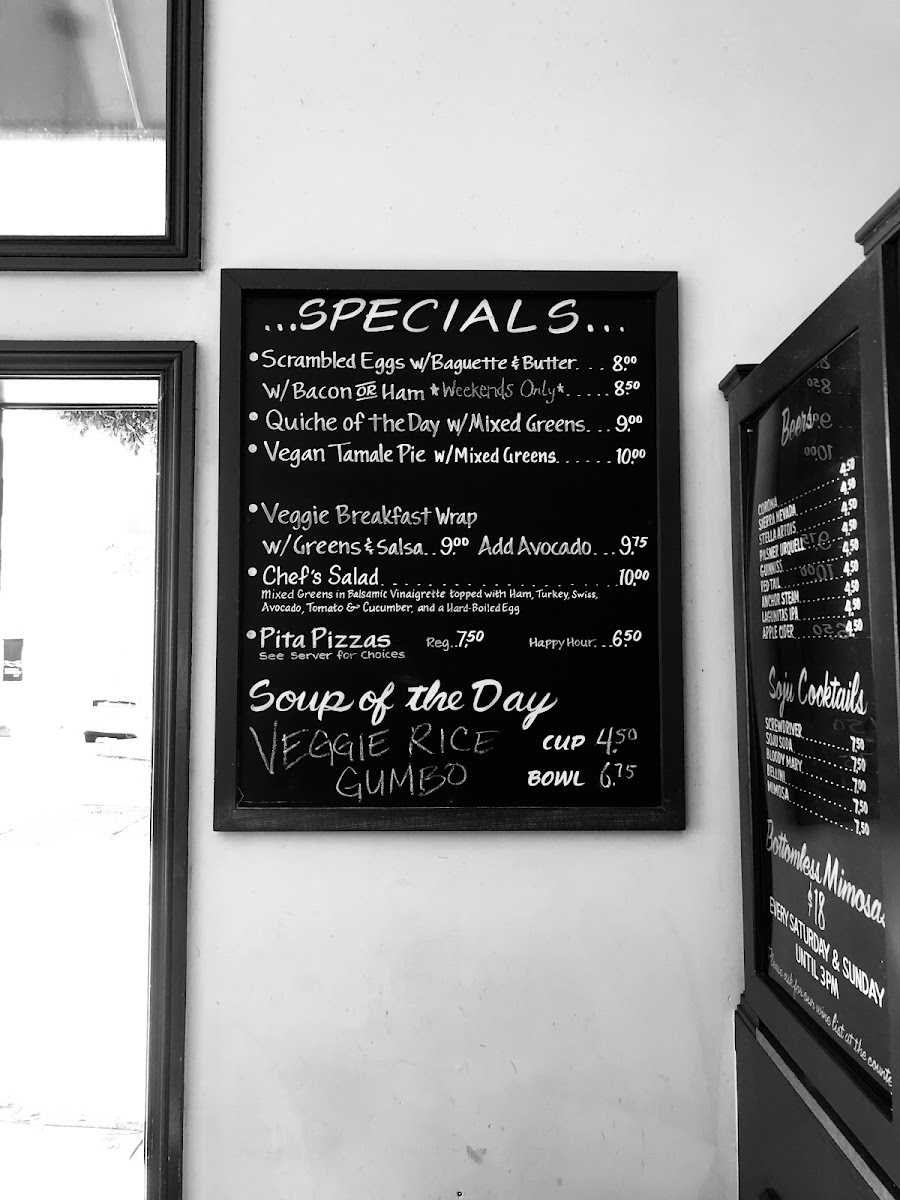 ...SPECIALS...
• Scrambled Eggs w/Baguette & Butter... 8.00
w/Bacon OR Ham *Weekends Only*..... 8.50
• Quiche of the Day w/Mixed Greens... 9.00
• Vegan Tamale Pie w/Mixed Greens...... 10.00
• Veggie Breakfast Wrap
w/Greens & Salsa.. 9.00 Add Avocado... 9.75
• Chef's Salad........................ 10.00
Mixed Greens in Balsamic Vinaigrette topped with Ham, Turkey, Swiss,
Avocado, Tomato & Cucumber, and a Hard-Boiled Egg
• Pita Pizzas Reg..7.50 Happy Hour...6.50
See Server for Choices
Soup of the Day
VEGGIE RICE CUP 4.50
GUMBO BOWL 6.75
Beers
CORONA 4.50
SIERRA NEVADA 4.50
STELLA ARTOIS 4.50
PILSNER URQUELL 4.50
GUINNISS 4.50
RED TAIL 4.50
ANCHOR STEAM 4.50
LAGUNITAS IPA 4.50
APPLE CIDER 4.50
Soju Cocktails
SCREWDRIVER 7.50
SOJU SODA 7.50
BLOODY MARY 7.00
BELLINI 7.50
MIMOSA 7.50
Bottomless Mimosas
$18
EVERY SATURDAY & SUNDAY
UNTIL 3PM
Please ask for our wine list at the counte